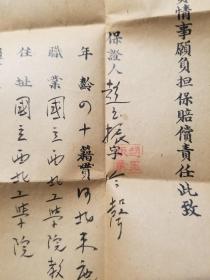 情事願負担保賠償責任此致
保證人趙玉振字令聲
年齡四十籍貫河北末
職業國立西北工學院教
住址國立西北工學院